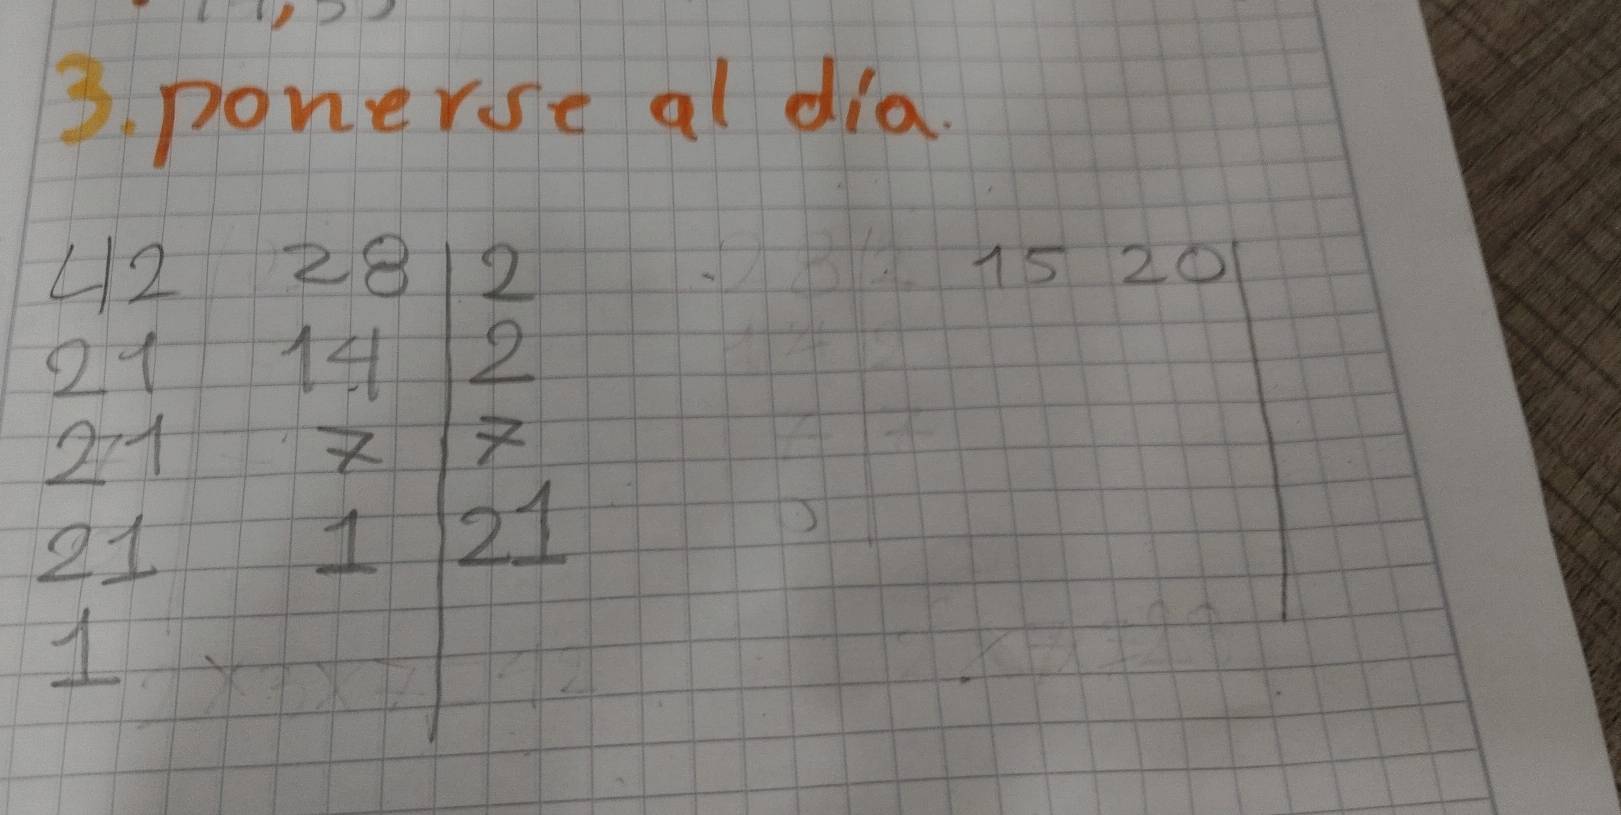 3. ponerse al día.
42 28 2 15 20
21 14 2
21 7 7
21 1 21
1